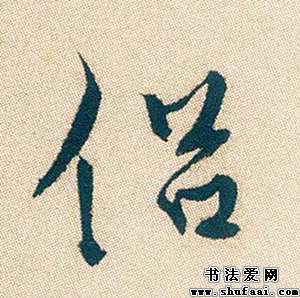 侣
书法爱网
www.shufaai.com